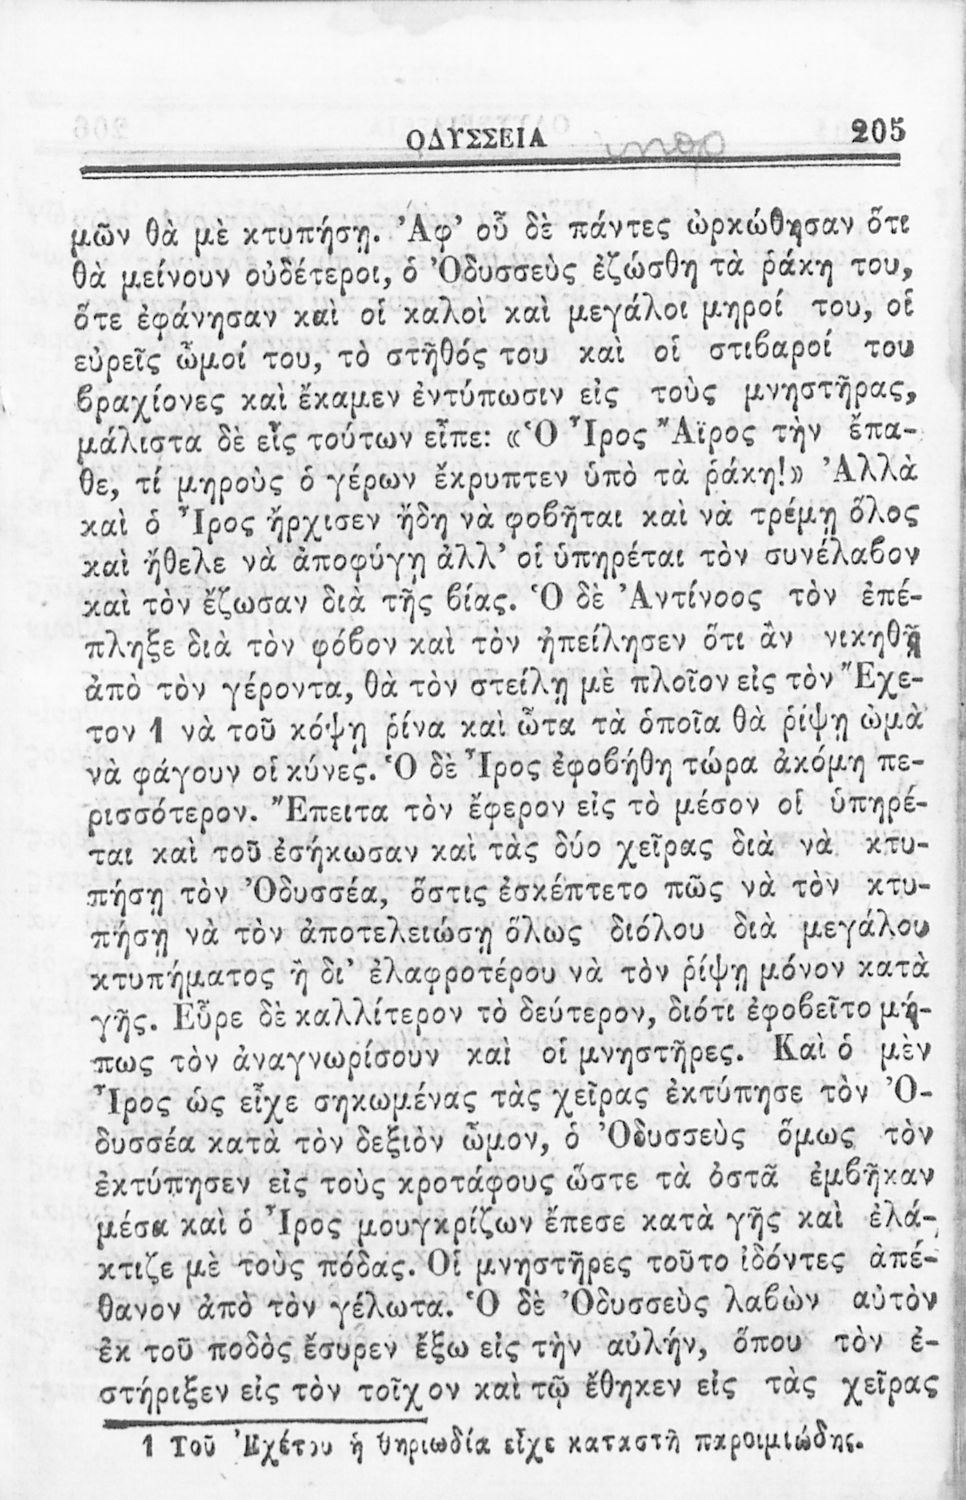 ΟΔΥΣΣΕΙΑ 205
μῶν θὰ μὲ κτυπήσῃ. Ἀφ’ οὗ δὲ πάντες ὡρκώθησαν ὅτι
θὰ μείνουν οὐδέτεροι, ὁ Ὀδυσσεὺς ἐζώσθη τὰ ῥάκη του,
ὅτε ἐφάνησαν καὶ οἱ καλοὶ καὶ μεγάλοι μηροί του, οἱ
εὐρεῖς ὦμοί του, τὸ στῆθός του καὶ οἱ στιβαροί του
βραχίονες καὶ ἔκαμεν ἐντύπωσιν εἰς τοὺς μνηστῆρας,
μάλιστα δὲ εἷς τούτων εἶπε: «Ὁ Ἶρος Ἄϊρος τὴν ἔπα-
θε, τί μηροὺς ὁ γέρων ἔκρυπτεν ὑπὸ τὰ ῥάκη!» Ἀλλὰ
καὶ ὁ Ἶρος ἤρχισεν ἤδη νὰ φοβῆται καὶ νὰ τρέμῃ ὅλος
καὶ ἤθελε νὰ ἀποφύγῃ ἀλλ’ οἱ ὑπηρέται τὸν συνέλαβον
καὶ τὸν ἔζωσαν διὰ τῆς βίας. Ὁ δὲ Ἀντίνοος τὸν ἐπέ-
πληξε διὰ τὸν φόβον καὶ τὸν ἠπείλησεν ὅτι ἂν νικηθῇ
ἀπὸ τὸν γέροντα, θὰ τὸν στείλῃ μὲ πλοῖον εἰς τὸν Ἔχε-
τον 1 νὰ τοῦ κόψῃ ῥίνα καὶ ὦτα τὰ ὁποῖα θὰ ῥίψῃ ὠμὰ
νὰ φάγουν οἱ κύνες. Ὁ δὲ Ἶρος ἐφοβήθη τώρα ἀκόμη πε-
ρισσότερον. Ἔπειτα τὸν ἔφερον εἰς τὸ μέσον οἱ ὑπηρέ-
ται καὶ τοῦ ἐσήκωσαν καὶ τὰς δύο χεῖρας διὰ νὰ κτυ-
πήσῃ τὸν Ὀδυσσέα, ὅστις ἐσκέπτετο πῶς νὰ τὸν κτυ-
πήσῃ νὰ τὸν ἀποτελειώσῃ ὅλως διόλου διὰ μεγάλου
κτυπήματος ἢ δι’ ἐλαφροτέρου νὰ τὸν ῥίψῃ μόνον κατὰ
γῆς. Εὗρε δὲ καλλίτερον τὸ δεύτερον, διότι ἐφοβεῖτο μή-
πως τὸν ἀναγνωρίσουν καὶ οἱ μνηστῆρες. Καὶ ὁ μὲν
Ἶρος ὡς εἶχε σηκωμένας τὰς χεῖρας ἐκτύπησε τὸν Ὀ-
δυσσέα κατὰ τὸν δεξιὸν ὦμον, ὁ Ὀδυσσεὺς ὅμως τὸν
ἐκτύπησεν εἰς τοὺς κροτάφους ὥστε τὰ ὀστᾶ ἐμβῆκαν
μέσα καὶ ὁ Ἶρος μουγκρίζων ἔπεσε κατὰ γῆς καὶ ἐλά-
κτιζε μὲ τοὺς πόδας. Οἱ μνηστῆρες τοῦτο ἰδόντες ἀπέ-
θανον ἀπὸ τὸν γέλωτα. Ὁ δὲ Ὀδυσσεὺς λαβὼν αὐτὸν
ἐκ τοῦ ποδὸς ἔσυρεν ἔξω εἰς τὴν αὐλήν, ὅπου τὸν ἐ-
στήριξεν εἰς τὸν τοῖχον καὶ τῷ ἔθηκεν εἰς τὰς χεῖρας
1 Τοῦ Ἐχέτου ἡ θηριωδία εἶχε καταστῆ παροιμιώδης.